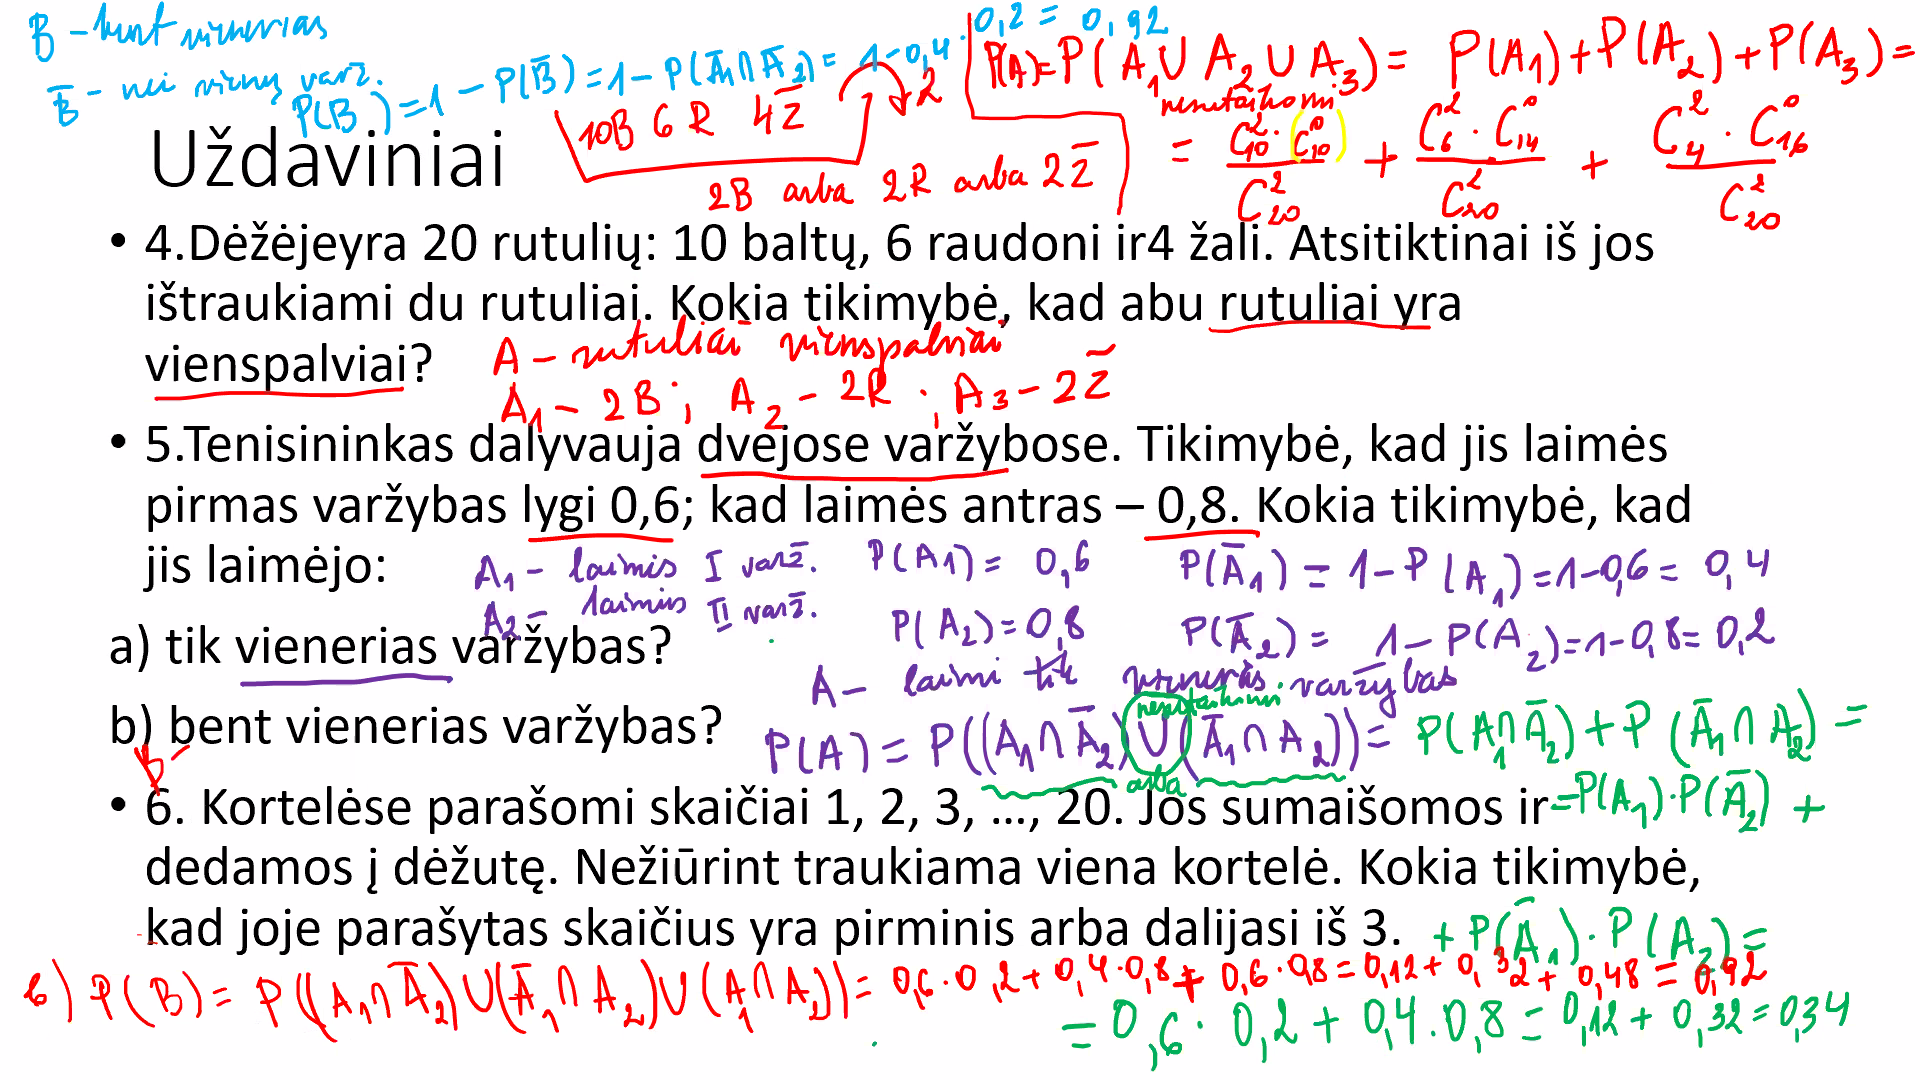 B – bent vienerias
B̅ – nei vienų varž.
P(B) = 1 – P(B̅) = 1 – P(A̅₁∩A̅₂) = 1 – 0,4 · 0,2 = 0,92
10B 6R 4Ž 2
2B arba 2R arba 2Ž
P(A) = P(A₁∪A₂∪A₃) = P(A₁) + P(A₂) + P(A₃) =
nesutaikomi
= C²₁₀ · C⁰₁₀ / C²₂₀ + C²₆ · C⁰₁₄ / C²₂₀ + C²₄ · C⁰₁₆ / C²₂₀
Uždaviniai
• 4.Dėžėjeyra 20 rutulių: 10 baltų, 6 raudoni ir4 žali. Atsitiktinai iš jos
ištraukiami du rutuliai. Kokia tikimybė, kad abu rutuliai yra
vienspalviai?
A – rutuliai vienspalviai
A₁ – 2B; A₂ – 2R; A₃ – 2Ž
• 5.Tenisininkas dalyvauja dvejose varžybose. Tikimybė, kad jis laimės
pirmas varžybas lygi 0,6; kad laimės antras – 0,8. Kokia tikimybė, kad
jis laimėjo:
A₁ – laimės I varž. P(A₁) = 0,6 P(A̅₁) = 1 – P(A₁) = 1 – 0,6 = 0,4
A₂ = laimės II varž. P(A₂) = 0,8 P(A̅₂) = 1 – P(A₂) = 1 – 0,8 = 0,2
a) tik vienerias varžybas?
A – laimi tik vienerias varžybas
nesutaikomi
b) bent vienerias varžybas?
B –
P(A) = P((A₁∩A̅₂)∪(A̅₁∩A₂)) = P(A₁∩A̅₂) + P(A̅₁∩A₂) =
arba
= P(A₁) · P(A̅₂) +
• 6. Kortelėse parašomi skaičiai 1, 2, 3, …, 20. Jos sumaišomos ir
dedamos į dėžutę. Nežiūrint traukiama viena kortelė. Kokia tikimybė,
kad joje parašytas skaičius yra pirminis arba dalijasi iš 3.
+ P(A̅₁) · P(A₂) =
b) P(B) = P((A₁∩A̅₂)∪(A̅₁∩A₂)∪(A₁∩A₂)) = 0,6 · 0,2 + 0,4 · 0,8 + 0,6 · 0,8 = 0,12 + 0,32 + 0,48 = 0,92
= 0,6 · 0,2 + 0,4 · 0,8 = 0,12 + 0,32 = 0,34